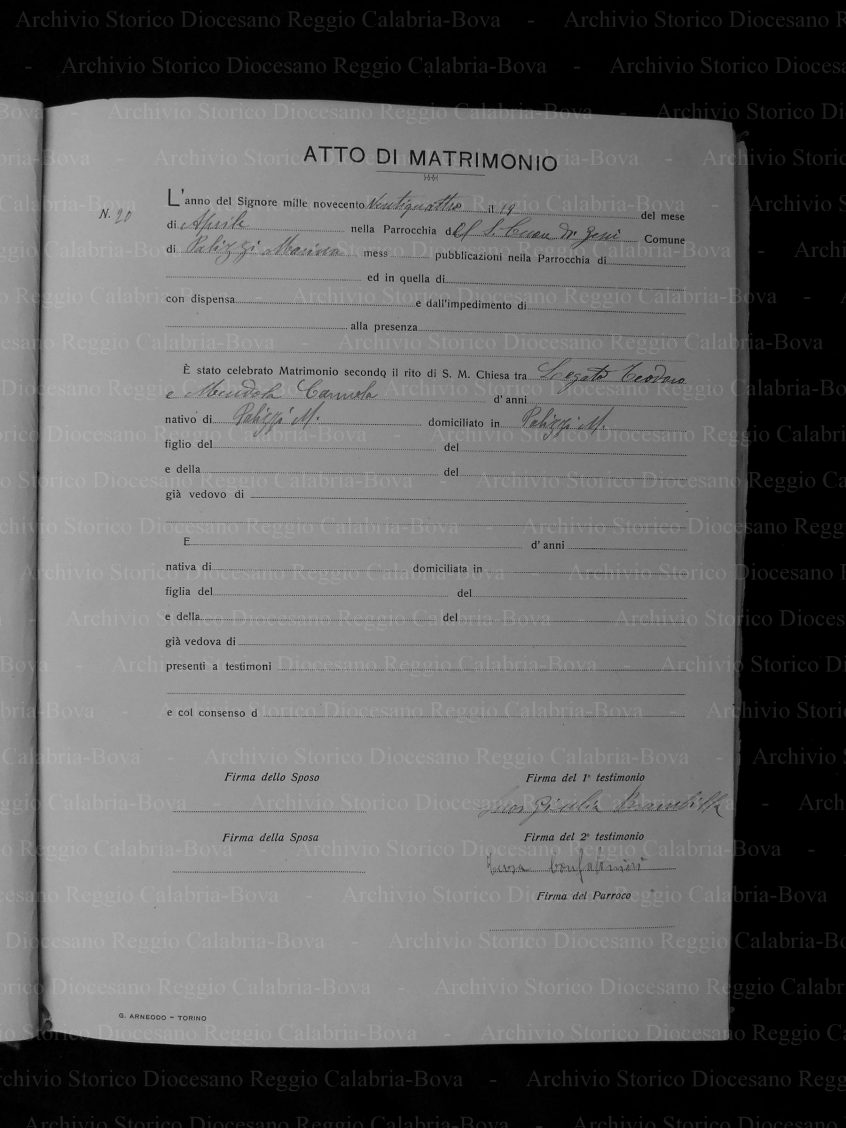 ATTO DI MATRIMONIO
N. 20
L'anno del Signore mille novecento Ventiquattro il 19 del mese
di Aprile nella Parrocchia del S. Cuore di Gesù Comune
di Palizzi Marina mess pubblicazioni nella Parrocchia di
ed in quella di
con dispensa e dall'impedimento di
alla presenza
È stato celebrato Matrimonio secondo il rito di S. M. Chiesa tra Teodoro
e Mendola Carmela d'anni
nativo di Palizzi M. domiciliato in Palizzi M.
figlio del del
e della del
già vedovo di
E d'anni
nativa di domiciliata in
figlia del del
e della del
già vedova di
presenti a testimoni
e col consenso d
Firma dello Sposo Firma del 1° testimonio
Firma della Sposa Firma del 2° testimonio
Firma del Parroco
G. ARNEODO - TORINO
Archivio Storico Diocesano Reggio Calabria-Bova